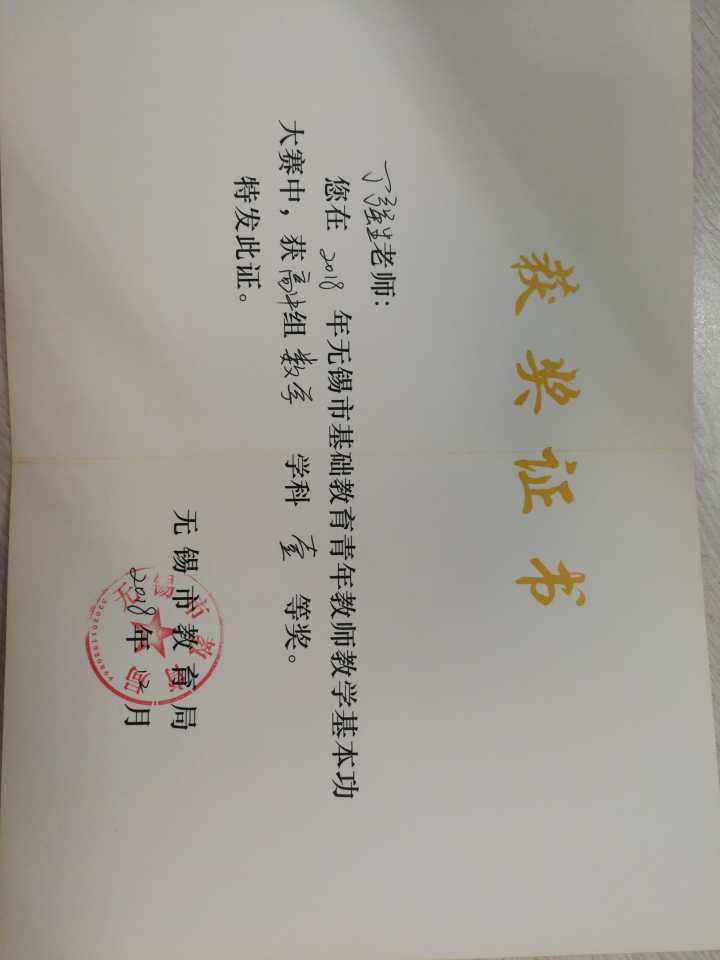 获奖证书
丁强生老师：
您在 2018 年无锡市基础教育青年教师教学基本功
大赛中，获高中组 数学 学科 壹 等奖。
特发此证。
无锡市教育局
2018年12月